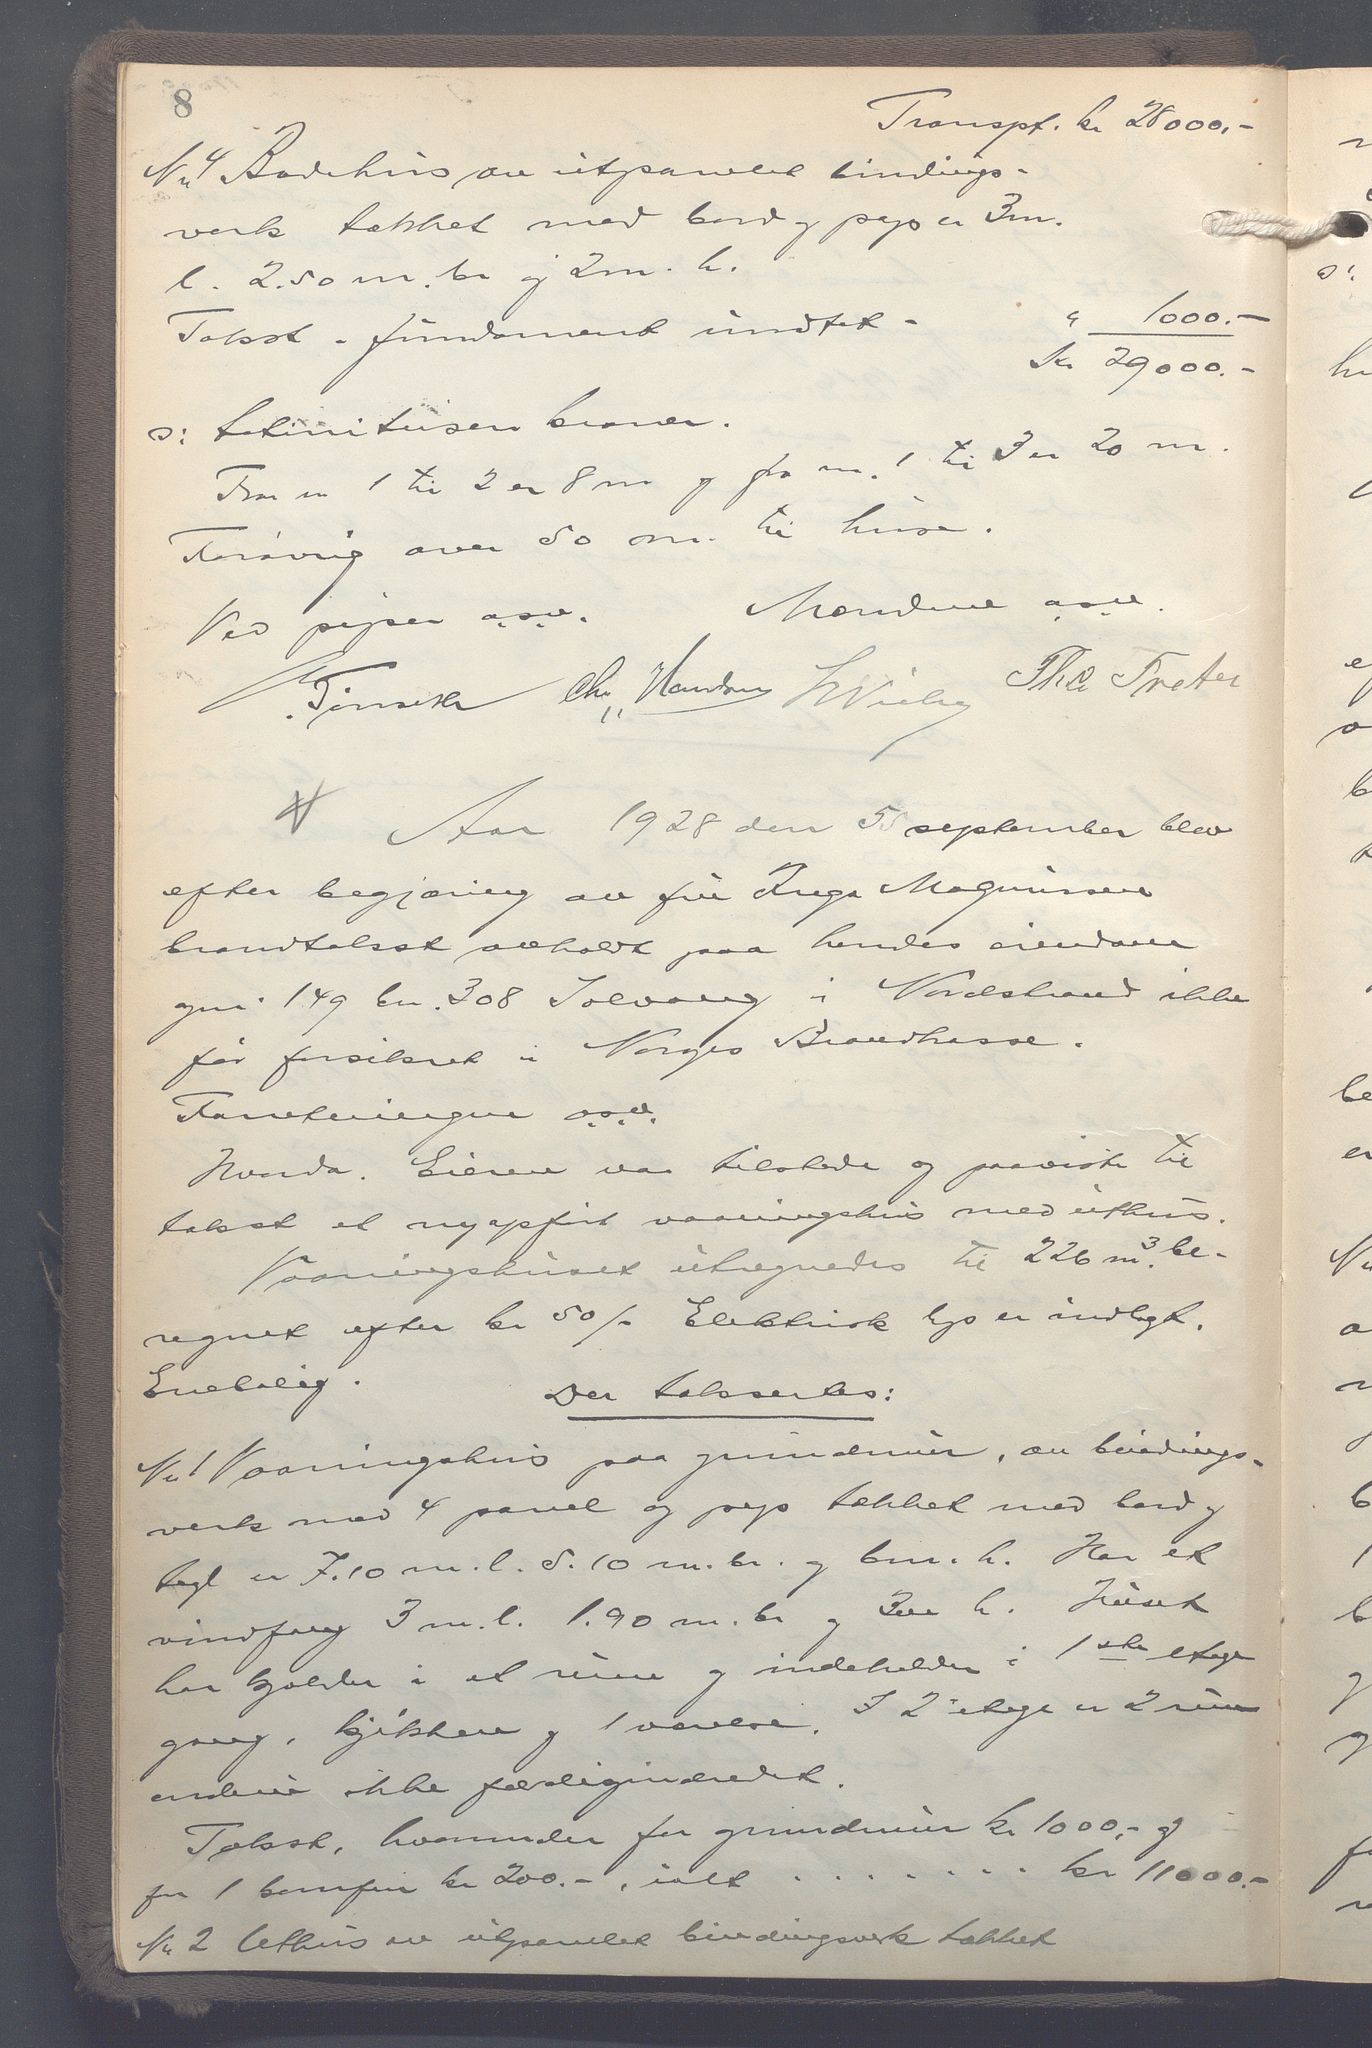 8
Transpt. kr 28000.-
Nr 4 Badehus av utpanelet bindings-
verk tækket med bord og papp er 3 m.
l. 2.50 m. br og 2 m. h.
Takst - fundament undtat - " 1000.-
Kr 29000.-
ɔ: totinitusen kroner.
Fra nr 1 til 2 er 8 m og fra nr. 1 til 3 er 20 m.
Forøvrig over 50 m. til huse.
Ved pipser o.s.v. Mændene o.s.v.
Chr. Th. Treter
Aar 1928 den 5 september blev
efter begjæring av fru Inga Magnussen
brandtakst avholdt paa hendes eiendom
gnr 149 bn. 308 Solvang i Nordstrand ikke
før forsikret i Norges Brandkasse.
Forretningen o.s.v.
Hvorda. Eieren var tilstede og paaviste til
takst et nyopført vaaningshus med uthus.
Vaaningshuset utregnedes til 226 m³. be-
regnet efter kr 50/- Elektrisk lys er indlagt.
Enebolig.
Der taksertes:
Nr 1 Vaaningshus paa grundmur, av bindings-
verk med 4 panel og papp tækket med bord og
tegl er 7.10 m. l. 5.10 m. br. og 6 m. h. Har et
vindfang 3 m. l. 1.90 m. br og 3 m h. Huset
har kjælder i et rum og indeholder i 1ste etage
gang, kjøkken og 1 værelse. I 2" etage er 2 rum
endnu ikke færdigindredet.
Takst, hvorunder for grundmur kr 1000,- og
for 1 komfur kr 200.-, ialt . . . . . . . kr 11000.-
Nr 2 Uthus av utpanelet bindingsverk tækket